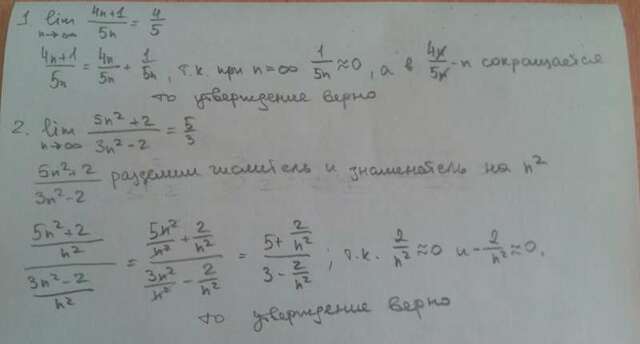 1. lim n→∞ (4n+1)/(5n) = 4/5
(4n+1)/(5n) = 4n/5n + 1/5n, т.к. при n=∞ 1/5n ≈ 0, а в 4n/5n - n сокращается
то утверждение верно
2. lim n→∞ (5n²+2)/(3n²-2) = 5/3
(5n²+2)/(3n²-2) разделим числитель и знаменатель на n²
((5n²+2)/n²)/((3n²-2)/n²) = (5n²/n² + 2/n²)/(3n²/n² - 2/n²) = (5+2/n²)/(3-2/n²); т.к. 2/n² ≈ 0 и -2/n² ≈ 0,
то утверждение верно